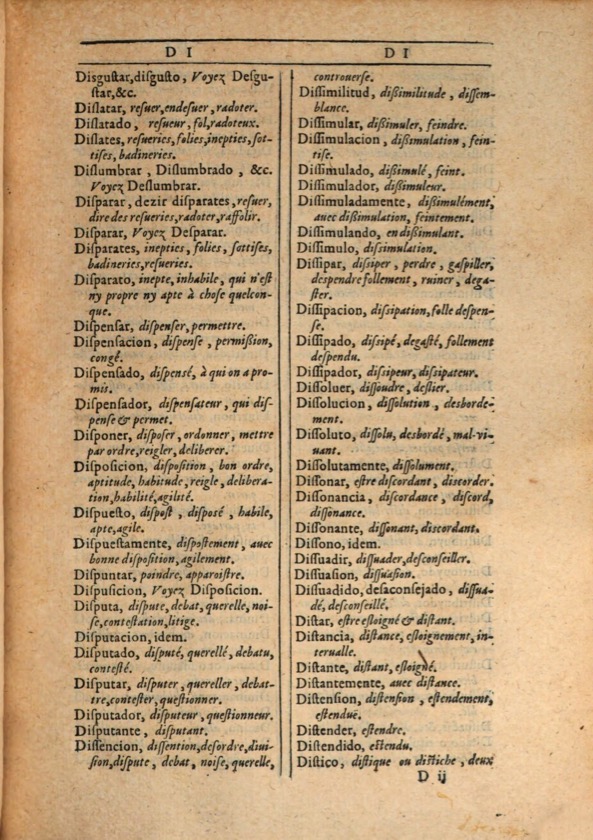 D I
Disgustar,disgusto, Voyez Desgu-
star,&c.
Dislatar, resuer,endesuer, radoter.
Dislatado, resueur, fol,radoteux.
Dislates, resueries, folies,inepties, sot-
tises, badineries.
Dislumbrar, Dislumbrado, &c.
Voyez Deslumbrar.
Disparar, dezir disparates, resuer,
dire des resueries,radoter,raffolir.
Disparar, Voyez Desparar.
Disparates, inepties, folies, sottises,
badineries,resueries.
Disparato, inepte, inhabile, qui n'est
ny propre ny apte à chose quelcon-
que.
Dispensar, dispenser, permettre.
Dispensacion, dispense, permißion,
congé.
Dispensado, dispensé, à qui on a pro-
mis.
Dispensador, dispensateur, qui dis-
pense & permet.
Disponer, disposer, ordonner, mettre
par ordre,reigler, deliberer.
Disposicion, disposition, bon ordre,
aptitude, habitude, reigle, delibera-
tion,habilité,agilité.
Dispuesto, dispost, disposé, habile,
apte,agile.
Dispuestamente, dispostement, auec
bonne disposition,agilement.
Dispuntar, poindre, apparoistre.
Dispusicion, Voyez Disposicion.
Disputa, dispute, debat, querelle, noi-
se,contestation,litige.
Disputacion, idem.
Disputado, disputé, querellé, debatu,
contesté.
Disputar, disputer, quereller, debat-
tre,contester, questionner.
Disputador, disputeur, questionneur.
Disputante, disputant.
Dissencion, dissention,desordre,diui-
sion,dispute, debat, noise, querelle,
D I
controuerse.
Dissimilitud, dißimilitude, dissem-
blance.
Dissimular, dißimuler, feindre.
Dissimulacion, dißimulation, fein-
tise.
Dissimulado, dißimulé, feint.
Dissimulador, dißimuleur.
Dissimuladamente, dißimulément,
auec dißimulation, feintement.
Dissimulando, en dißimulant.
Dissimulo, dissimulation.
Dissipar, dissiper, perdre, gaspiller,
despendre follement, ruiner, dega-
ster.
Dissipacion, dissipation,folle despen-
se.
Dissipado, dissipé, degasté, follement
despendu.
Dissipador, dissipeur, dissipateur.
Dissoluer, dissoudre, deslier.
Dissolucion, dissolution, desborde-
ment.
Dissoluto, dissolu, desbordé, mal-vi-
uant.
Dissolutamente, dissolument.
Dissonar, estre discordant, discorder.
Dissonancia, discordance, discord,
dissonance.
Dissonante, dissonant, discordant.
Dissono, idem.
Dissuadir, dissuader,desconseiller.
Dissuasion, dissuasion.
Dissuadido, desaconsejado, dissua-
dé, desconseillé.
Distar, estre esloigné & distant.
Distancia, distance, esloignement, in-
terualle.
Distante, distant, esloigné.
Distantemente, auec distance.
Distension, distension, estendement,
estenduë.
Distender, estendre.
Distendido, estendu.
Distico, distique ou distiche, deux
D ij